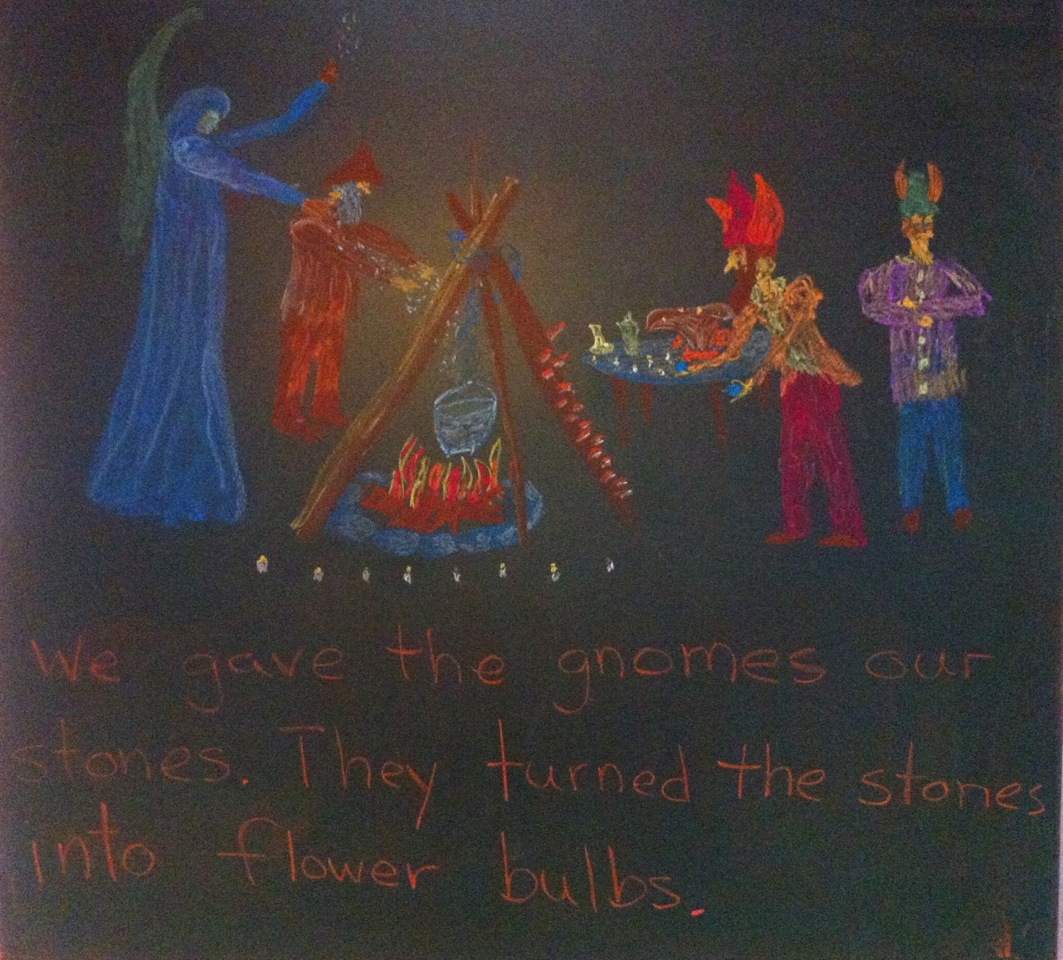 We gave the gnomes our
stones. They turned the stones
into flower bulbs.